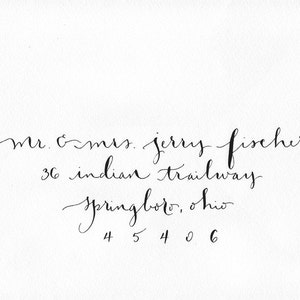 mr. & mrs. jerry fischer
36 indian trailway
springboro, ohio
45406